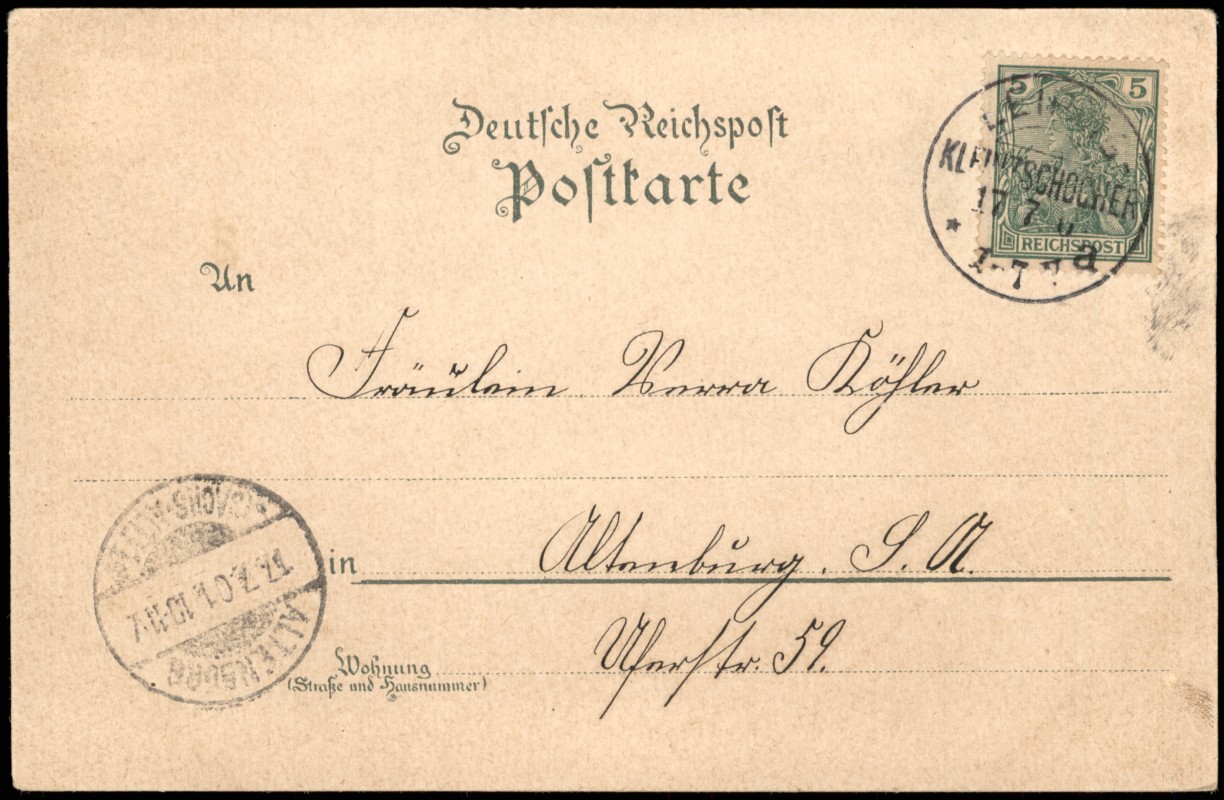 Deutsche Reichspost
Postkarte
5 5
REICHSPOST
KLEINZSCHOCHER
17 7 0
a
An
Fräulein Verra Köhler
in Altenburg. S. A.
Wohnung Uferstr. 59.
(Straße und Hausnummer)
ALTENBURG
17.7.01. 10-11 V.